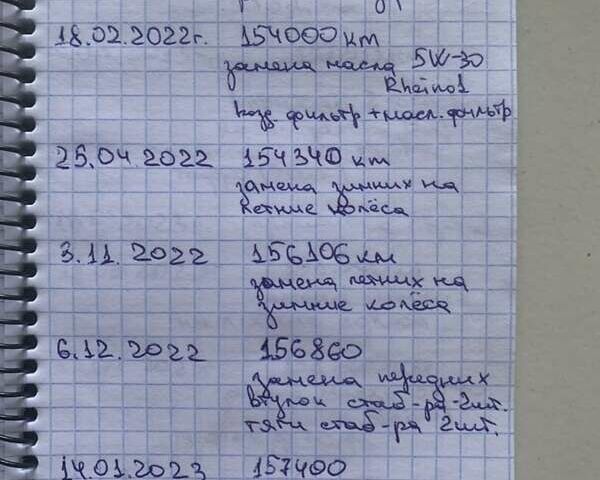 18.02.2022г. 154000 км
замена масла 5W-30
Rheinol
возд. фильтр + масл. фильтр
25.04.2022 154340 км
замена зимних на
летние колёса
3.11.2022 156106 км
замена летних на
зимние колёса
6.12.2022 156860
замена передних
втулок стаб-ра-2шт.
тяги стаб-ра 2шт.
14.01.2023 157400